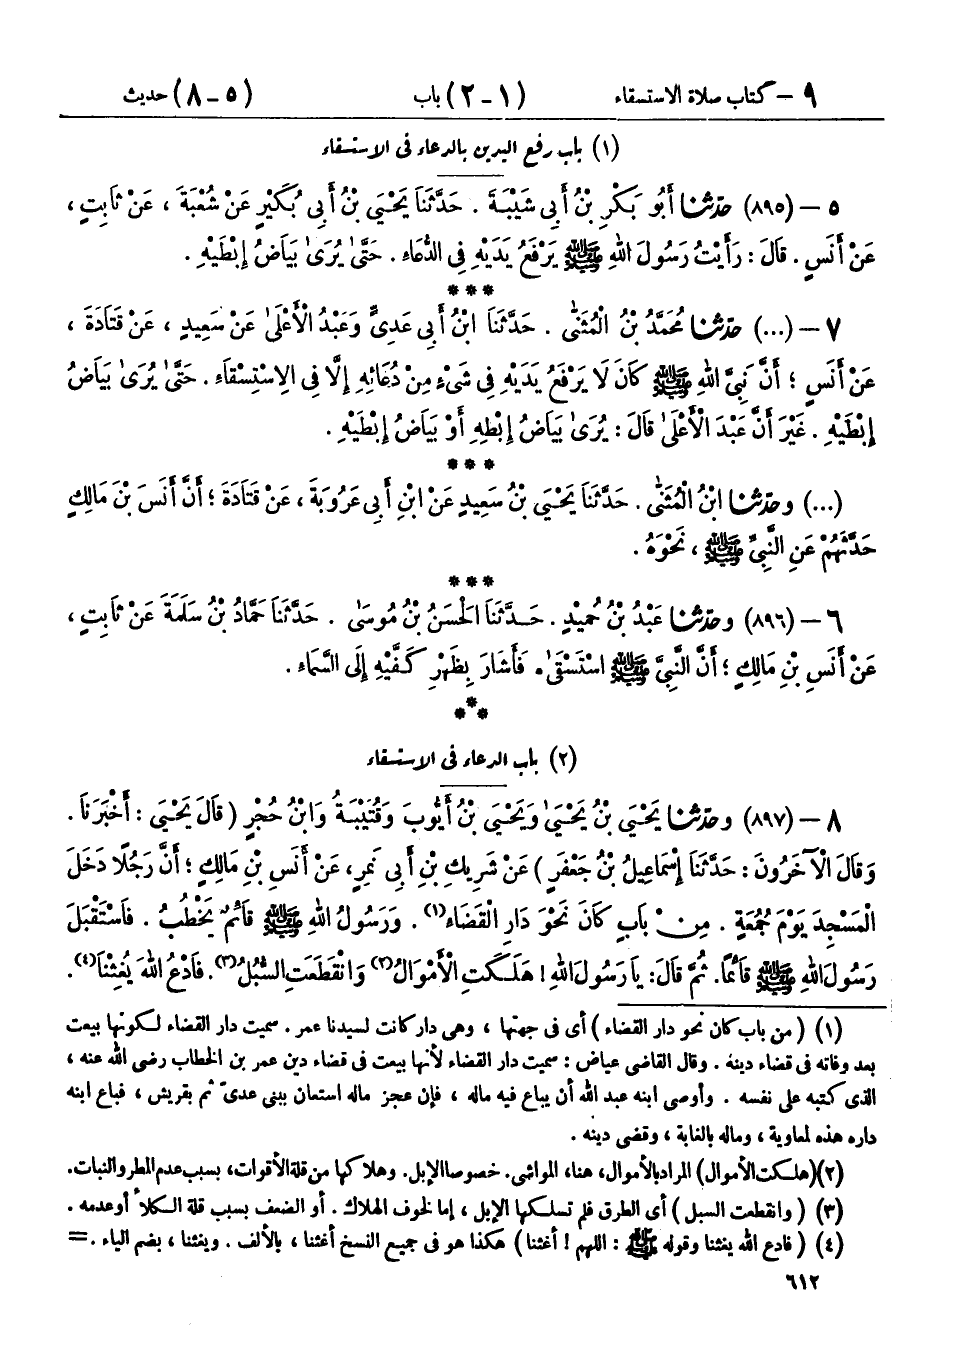 ٩ – كتاب صلاة الاستسقاء (١ – ٢) باب (٥ – ٨) حديث
(١) باب رفع اليدين بالدعاء فى الاستسقاء
٥ – (٨٩٥) حدّثنا أَبُو بَكْرِ بْنُ أَبِى شَيْبَةَ . حَدَّثَنَا يَحْيَىَ بْنُ أَبِى بُكَيْرٍ عَنْ شُعْبَةَ ، عَنْ ثَابِتٍ ،
عَنْ أَنَسٍ . قَالَ : رَأَيْتُ رَسُولَ اللهِ ﷺ يَرْفَعُ يَدَيْهِ فِى الدُّعَاءِ . حَتَّىٰ يُرَىٰ بَيَاضُ إِبْطَيْهِ .
***
٧ – (...) حدّثنا مُحَمَّدُ بْنُ الْمُثَنَّى . حَدَّثَنَا ابْنُ أَبِى عَدِىٍّ وَعَبْدُ الْأَعْلَىٰ عَنْ سَعِيدٍ ، عَنْ قَتَادَةَ ،
عَنْ أَنَسٍ ؛ أَنَّ نَبِىَّ اللهِ ﷺ كَانَ لَا يَرْفَعُ يَدَيْهِ فِى شَىْءٍ مِنْ دُعَائِهِ إِلَّا فِى الِاسْتِسْقَاءِ . حَتَّىٰ يُرَىٰ بَيَاضُ
إِبْطَيْهِ . غَيْرَ أَنَّ عَبْدَ الْأَعْلَىٰ قَالَ : يُرَىٰ بَيَاضُ إِبْطِهِ أَوْ بَيَاضُ إِبْطَيْهِ .
***
(...) وحدّثنا ابْنُ الْمُثَنَّى . حَدَّثَنَا يَحْيَىَ بْنُ سَعِيدٍ عَنْ ابْنِ أَبِى عَرُوبَةَ ، عَنْ قَتَادَةَ ؛ أَنَّ أَنَسَ بْنَ مَالِكٍ
حَدَّثَهُمْ عَنِ النَّبِىِّ ﷺ ، نَحْوَهُ .
***
٦ – (٨٩٦) وحدّثنا عَبْدُ بْنُ حُمَيْدٍ . حَدَّثَنَا الْحَسَنُ بْنُ مُوسَىٰ . حَدَّثَنَا حَمَّادُ بْنُ سَلَمَةَ عَنْ ثَابِتٍ ،
عَنْ أَنَسِ بْنِ مَالِكٍ ؛ أَنَّ النَّبِىَّ ﷺ اسْتَسْقَىٰ . فَأَشَارَ بِظَهْرِ كَفَّيْهِ إِلَى السَّمَاءِ .
***
(٢) باب الدعاء فى الاستسقاء
٨ – (٨٩٧) وحدّثنا يَحْيَىَ بْنُ يَحْيَىٰ وَيَحْيَىَ بْنُ أَيُّوبَ وَقُتَيْبَةُ وَابْنُ حُجْرٍ ( قَالَ يَحْيَىَ : أَخْبَرَنَا .
وَقَالَ الْآخَرُونَ : حَدَّثَنَا إِسْمَاعِيلُ بْنُ جَعْفَرٍ ) عَنْ شَرِيكِ بْنِ أَبِى نَمِرٍ، عَنْ أَنَسِ بْنِ مَالِكٍ ؛ أَنَّ رَجُلًا دَخَلَ
الْمَسْجِدَ يَوْمَ جُمُعَةٍ . مِنْ بَابٍ كَانَ نَحْوَ دَارِ الْقَضَاءِ(١) . وَرَسُولُ اللهِ ﷺ قَائِمٌ يَخْطُبُ . فَاسْتَقْبَلَ
رَسُولَ اللهِ ﷺ قَائِمًا. ثُمَّ قَالَ: يَا رَسُولَ اللهِ ! هَلَكَتِ الْأَمْوَالُ(٢) وَانْقَطَعَتِ السُّبُلُ(٣). فَادْعُ اللهَ يُغِثْنَا(٤).
(١) ( من باب كان نحو دار القضاء ) أى فى جهتها ، وهى دار كانت لسيدنا عمر . سميت دار القضاء لكونها بيعت
بعد وفاته فى قضاء دينه . وقال القاضى عياض : سميت دار القضاء لأنها بيعت فى قضاء دين عمر بن الخطاب رضى الله عنه ،
الذى كتبه على نفسه . وأوصى ابنه عبد الله أن يباع فيه ماله ، فإن عجز ماله استعان ببنى عدىّ ثم بقريش ، فباع ابنه
داره هذه لمعاوية ، وماله بالغابة ، وقضى دينه .
(٢) (هلكت الأموال) المراد بالأموال، هنا، المواشى. خصوصا الإبل. وهلاكها من قلة الأقوات، بسبب عدم المطر والنبات.
(٣) ( وانقطعت السبل ) أى الطرق فلم تسلكها الإبل ، إما لخوف الهلاك . أو الضعف بسبب قلة الكلأ أو عدمه .
(٤) ( فادع الله يغثنا وقوله ﷺ : اللهم ! أغثنا ) هكذا هو فى جميع النسخ أغثنا ، بالألف . ويغثنا ، بضم الياء . =
٦١٢